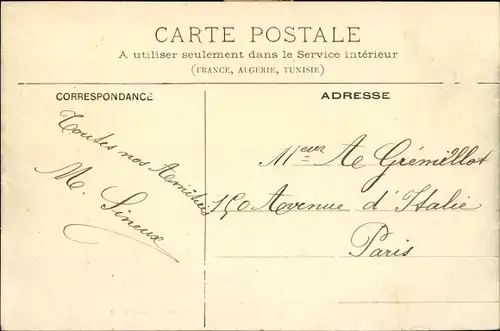 CARTE POSTALE
A utiliser seulement dans le Service intérieur
(FRANCE, ALGÉRIE, TUNISIE)
CORRESPONDANCE
Toutes nos Amitiés
M. Sineux
ADRESSE
Mr Ae Grémillot
150 Avenue d'Italie
Paris